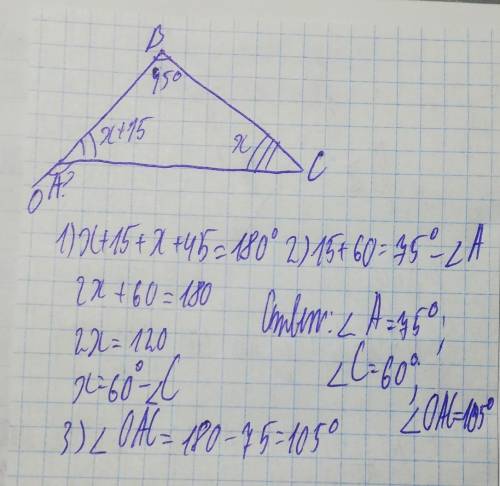 B
45°
x+15
x
C
A?
O
1) x+15+x+45=180° 2) 15+60=75°-∠A
2x+60=180
2x=120
x=60°-∠C
3) ∠OAC=180-75=105°
Ответ: ∠A=75°;
∠C=60°;
∠OAC=105°